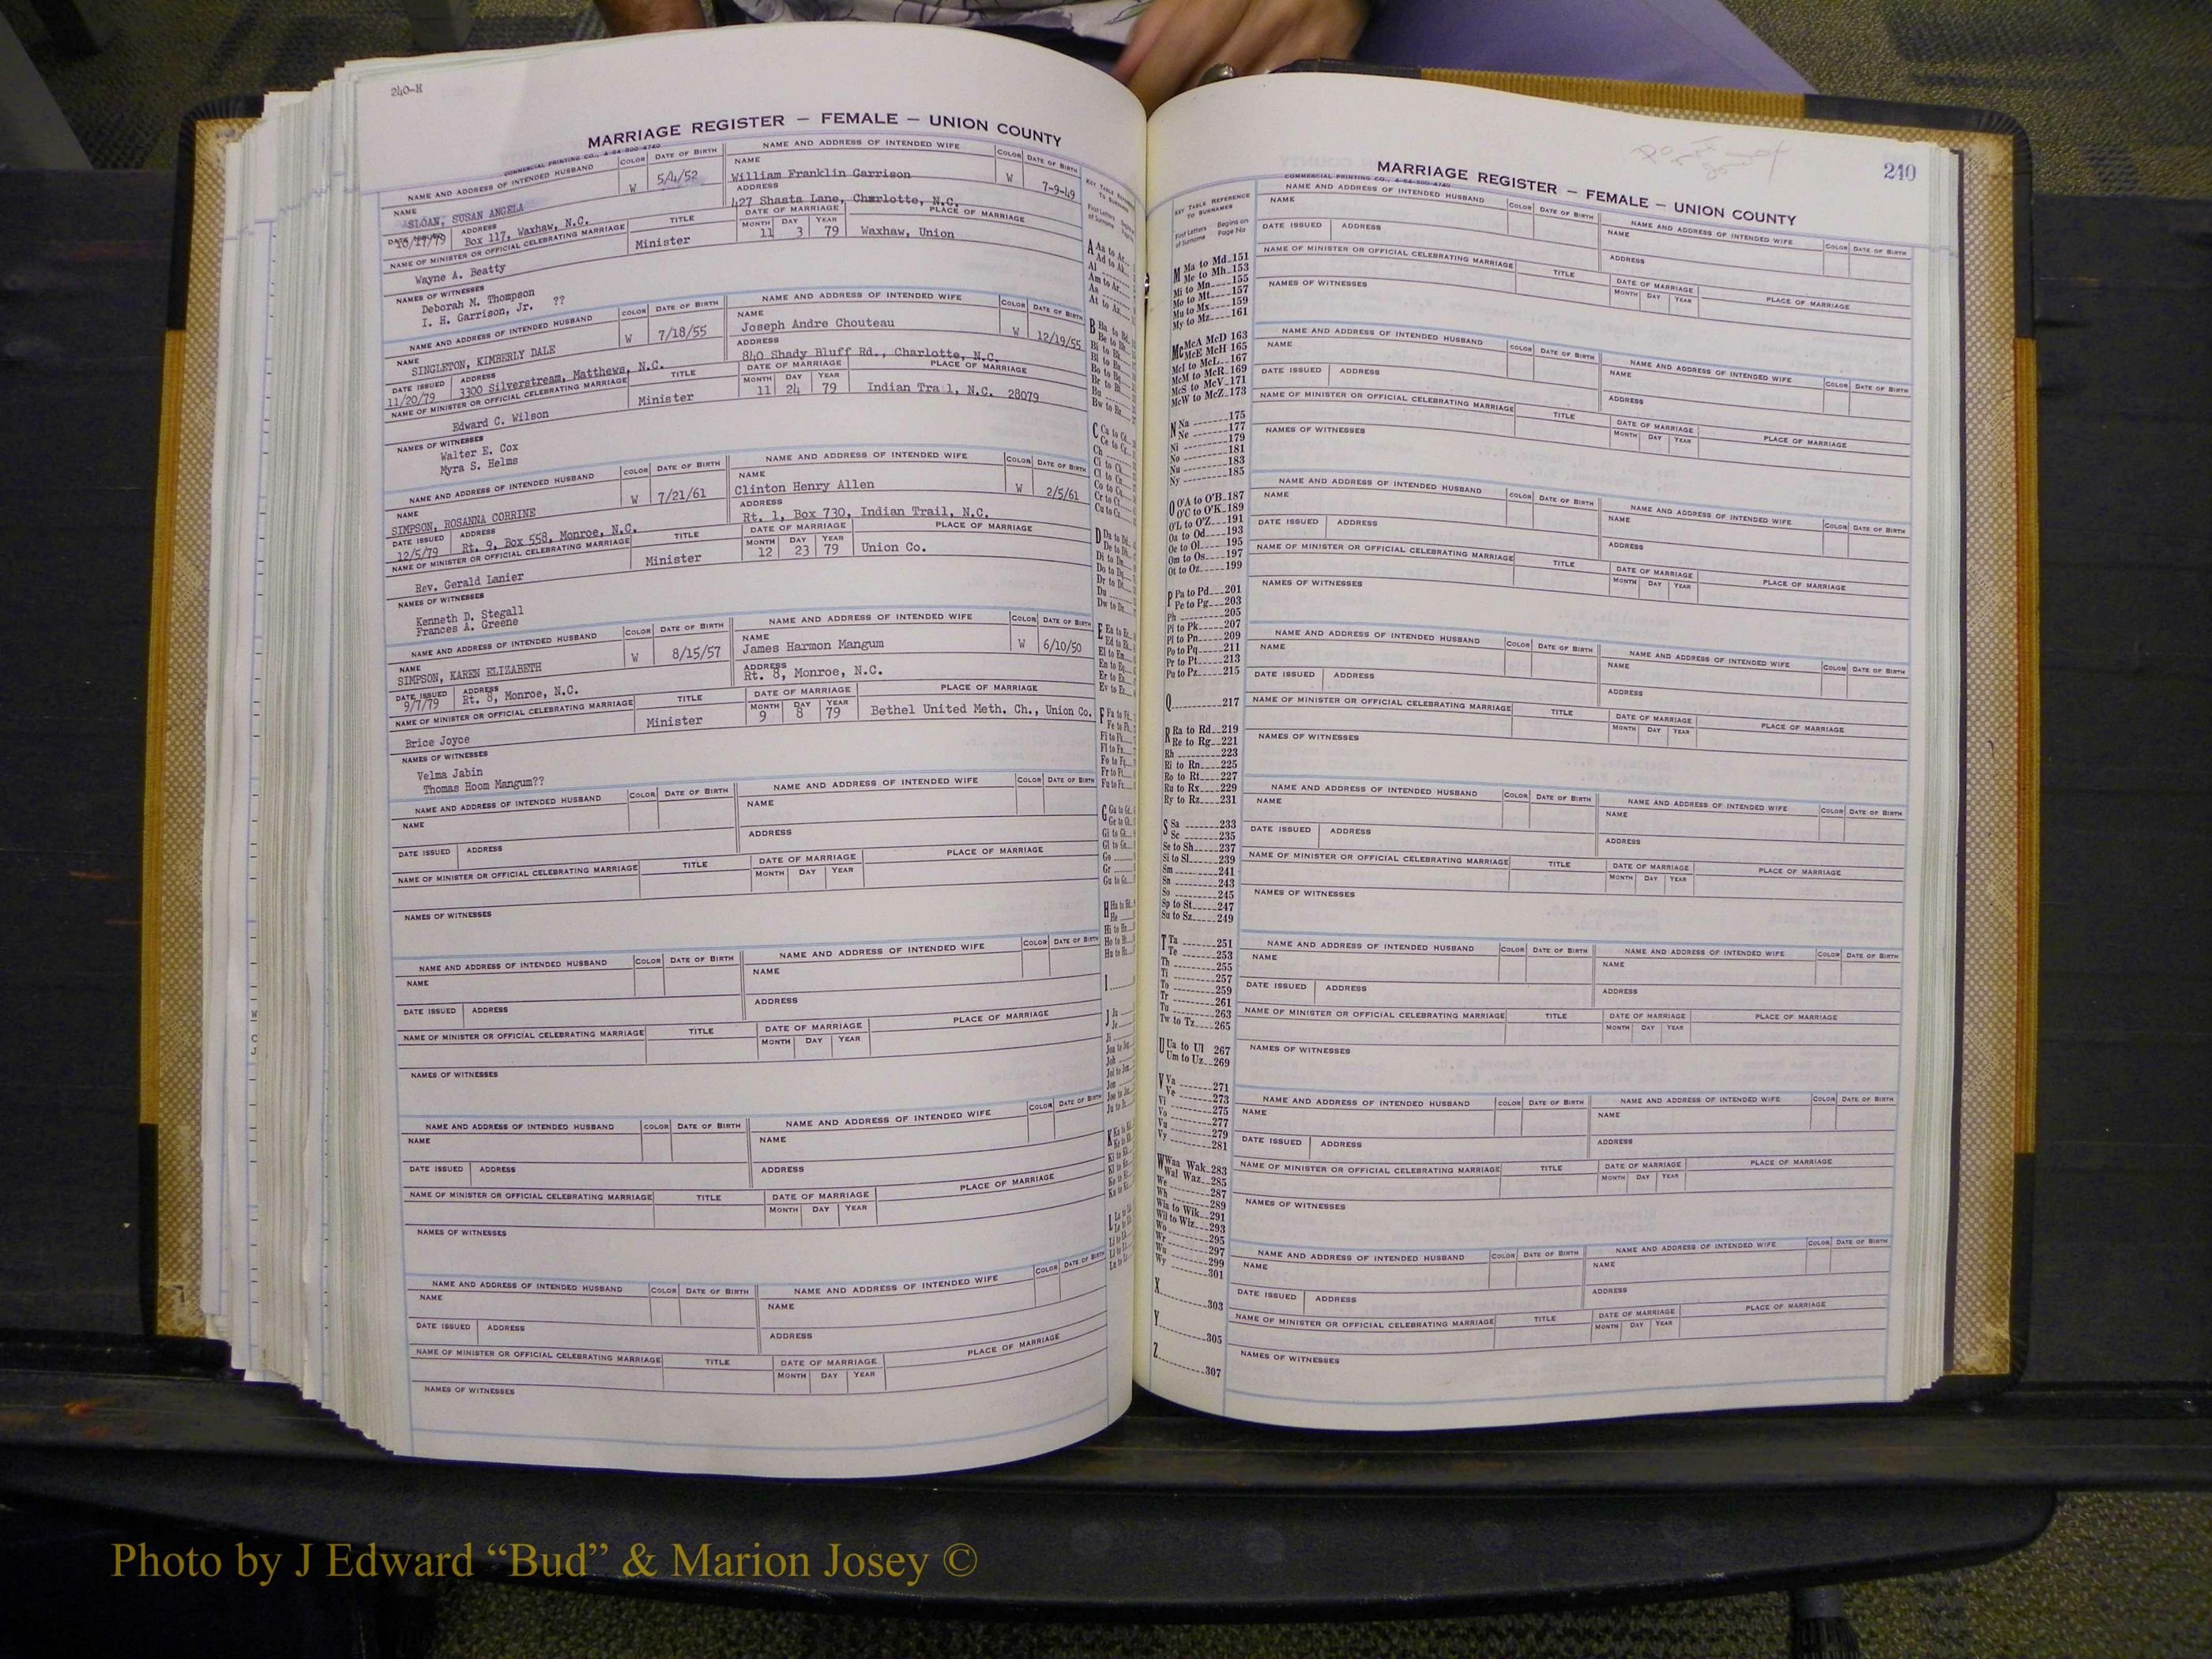 240-H
MARRIAGE REGISTER — FEMALE — UNION COUNTY
COMMERCIAL PRINTING CO., 4-64-500-4740
NAME AND ADDRESS OF INTENDED HUSBAND COLOR DATE OF BIRTH NAME AND ADDRESS OF INTENDED WIFE COLOR DATE OF BIRTH
NAME W 5/4/52 NAME W 7-9-49
SLOAN, SUSAN ANGELA William Franklin Garrison
DATE ISSUED ADDRESS ADDRESS
Box 117, Waxhaw, N.C. 427 Shasta Lane, Charlotte, N.C.
NAME OF MINISTER OR OFFICIAL CELEBRATING MARRIAGE TITLE DATE OF MARRIAGE PLACE OF MARRIAGE
MONTH DAY YEAR
Wayne A. Beatty Minister 11 3 79 Waxhaw, Union
NAMES OF WITNESSES
Deborah M. Thompson
I. H. Garrison, Jr. ??
NAME AND ADDRESS OF INTENDED HUSBAND COLOR DATE OF BIRTH NAME AND ADDRESS OF INTENDED WIFE COLOR DATE OF BIRTH
NAME W 7/18/55 NAME W 12/19/55
SINGLETON, KIMBERLY DALE Joseph Andre Chouteau
DATE ISSUED ADDRESS ADDRESS
11/20/79 3300 Silverstream, Matthews, N.C. 840 Shady Bluff Rd., Charlotte, N.C.
NAME OF MINISTER OR OFFICIAL CELEBRATING MARRIAGE TITLE DATE OF MARRIAGE PLACE OF MARRIAGE
MONTH DAY YEAR
Edward C. Wilson Minister 11 24 79 Indian Tra l, N.C. 28079
NAMES OF WITNESSES
Walter E. Cox
Myra S. Helms
NAME AND ADDRESS OF INTENDED HUSBAND COLOR DATE OF BIRTH NAME AND ADDRESS OF INTENDED WIFE COLOR DATE OF BIRTH
NAME W 7/21/61 NAME W 2/5/61
SIMPSON, ROSANNA CORRINE Clinton Henry Allen
DATE ISSUED ADDRESS ADDRESS
12/5/79 Rt. 9, Box 558, Monroe, N.C. Rt. 1, Box 730, Indian Trail, N.C.
NAME OF MINISTER OR OFFICIAL CELEBRATING MARRIAGE TITLE DATE OF MARRIAGE PLACE OF MARRIAGE
MONTH DAY YEAR
Rev. Gerald Lanier Minister 12 23 79 Union Co.
NAMES OF WITNESSES
Kenneth D. Stegall
Frances A. Greene
NAME AND ADDRESS OF INTENDED HUSBAND COLOR DATE OF BIRTH NAME AND ADDRESS OF INTENDED WIFE COLOR DATE OF BIRTH
NAME W 8/15/57 NAME W 6/10/50
SIMPSON, KAREN ELIZABETH James Harmon Mangum
DATE ISSUED ADDRESS ADDRESS
9/7/79 Rt. 8, Monroe, N.C. Rt. 8, Monroe, N.C.
NAME OF MINISTER OR OFFICIAL CELEBRATING MARRIAGE TITLE DATE OF MARRIAGE PLACE OF MARRIAGE
MONTH DAY YEAR
Brice Joyce Minister 9 8 79 Bethel United Meth. Ch., Union Co.
NAMES OF WITNESSES
Velma Jabin
Thomas Hoom Mangum??
NAME AND ADDRESS OF INTENDED HUSBAND COLOR DATE OF BIRTH NAME AND ADDRESS OF INTENDED WIFE COLOR DATE OF BIRTH
NAME NAME
DATE ISSUED ADDRESS ADDRESS
NAME OF MINISTER OR OFFICIAL CELEBRATING MARRIAGE TITLE DATE OF MARRIAGE PLACE OF MARRIAGE
MONTH DAY YEAR
NAMES OF WITNESSES
NAME AND ADDRESS OF INTENDED HUSBAND COLOR DATE OF BIRTH NAME AND ADDRESS OF INTENDED WIFE COLOR DATE OF BIRTH
NAME NAME
DATE ISSUED ADDRESS ADDRESS
NAME OF MINISTER OR OFFICIAL CELEBRATING MARRIAGE TITLE DATE OF MARRIAGE PLACE OF MARRIAGE
MONTH DAY YEAR
NAMES OF WITNESSES
NAME AND ADDRESS OF INTENDED HUSBAND COLOR DATE OF BIRTH NAME AND ADDRESS OF INTENDED WIFE COLOR DATE OF BIRTH
NAME NAME
DATE ISSUED ADDRESS ADDRESS
NAME OF MINISTER OR OFFICIAL CELEBRATING MARRIAGE TITLE DATE OF MARRIAGE PLACE OF MARRIAGE
MONTH DAY YEAR
NAMES OF WITNESSES
NAME AND ADDRESS OF INTENDED HUSBAND COLOR DATE OF BIRTH NAME AND ADDRESS OF INTENDED WIFE COLOR DATE OF BIRTH
NAME NAME
DATE ISSUED ADDRESS ADDRESS
NAME OF MINISTER OR OFFICIAL CELEBRATING MARRIAGE TITLE DATE OF MARRIAGE PLACE OF MARRIAGE
MONTH DAY YEAR
NAMES OF WITNESSES
240
MARRIAGE REGISTER — FEMALE — UNION COUNTY
COMMERCIAL PRINTING CO., 4-64-500-4740
KEY TABLE REFERENCE
TO SURNAMES
First Letters of Surname Begins on Page No
M Ma to Md 151
Me to Mh 153
Mi to Mn 155
Mo to Mt 157
Mu to Mx 159
My to Mz 161
Mc McA McD 163
McE McH 165
McI to McL 167
McM to McR 169
McS to McV 171
McW to McZ 173
N Na 175
Ne 177
Ni 179
No 181
Nu 183
Ny 185
O O'A to O'B 187
O'C to O'K 189
O'L to O'Z 191
Oa to Od 193
Oe to Ol 195
Om to Os 197
Ot to Oz 199
P Pa to Pd 201
Pe to Pg 203
Ph 205
Pi to Pk 207
Pl to Pn 209
Po to Pq 211
Pr to Pt 213
Pu to Pz 215
Q 217
R Ra to Rd 219
Re to Rg 221
Rh 223
Ri to Rn 225
Ro to Rt 227
Ru to Rx 229
Ry to Rz 231
S Sa 233
Sc 235
Se to Sh 237
Si to Sl 239
Sm 241
Sn 243
So 245
Sp to St 247
Su to Sz 249
T Ta 251
Te 253
Th 255
Ti 257
To 259
Tr 261
Tu 263
Tw to Tz 265
U Ua to Ul 267
Um to Uz 269
V Va 271
Ve 273
Vi 275
Vo 277
Vu 279
Vy 281
W Waa Wak 283
Wal Waz 285
We 287
Wh 289
Wia to Wik 291
Wil to Wiz 293
Wo 295
Wr 297
Wu 299
Wy 301
X 303
Y 305
Z 307
NAME AND ADDRESS OF INTENDED HUSBAND COLOR DATE OF BIRTH NAME AND ADDRESS OF INTENDED WIFE COLOR DATE OF BIRTH
NAME NAME
DATE ISSUED ADDRESS ADDRESS
NAME OF MINISTER OR OFFICIAL CELEBRATING MARRIAGE TITLE DATE OF MARRIAGE PLACE OF MARRIAGE
MONTH DAY YEAR
NAMES OF WITNESSES
NAME AND ADDRESS OF INTENDED HUSBAND COLOR DATE OF BIRTH NAME AND ADDRESS OF INTENDED WIFE COLOR DATE OF BIRTH
NAME NAME
DATE ISSUED ADDRESS ADDRESS
NAME OF MINISTER OR OFFICIAL CELEBRATING MARRIAGE TITLE DATE OF MARRIAGE PLACE OF MARRIAGE
MONTH DAY YEAR
NAMES OF WITNESSES
NAME AND ADDRESS OF INTENDED HUSBAND COLOR DATE OF BIRTH NAME AND ADDRESS OF INTENDED WIFE COLOR DATE OF BIRTH
NAME NAME
DATE ISSUED ADDRESS ADDRESS
NAME OF MINISTER OR OFFICIAL CELEBRATING MARRIAGE TITLE DATE OF MARRIAGE PLACE OF MARRIAGE
MONTH DAY YEAR
NAMES OF WITNESSES
NAME AND ADDRESS OF INTENDED HUSBAND COLOR DATE OF BIRTH NAME AND ADDRESS OF INTENDED WIFE COLOR DATE OF BIRTH
NAME NAME
DATE ISSUED ADDRESS ADDRESS
NAME OF MINISTER OR OFFICIAL CELEBRATING MARRIAGE TITLE DATE OF MARRIAGE PLACE OF MARRIAGE
MONTH DAY YEAR
NAMES OF WITNESSES
NAME AND ADDRESS OF INTENDED HUSBAND COLOR DATE OF BIRTH NAME AND ADDRESS OF INTENDED WIFE COLOR DATE OF BIRTH
NAME NAME
DATE ISSUED ADDRESS ADDRESS
NAME OF MINISTER OR OFFICIAL CELEBRATING MARRIAGE TITLE DATE OF MARRIAGE PLACE OF MARRIAGE
MONTH DAY YEAR
NAMES OF WITNESSES
NAME AND ADDRESS OF INTENDED HUSBAND COLOR DATE OF BIRTH NAME AND ADDRESS OF INTENDED WIFE COLOR DATE OF BIRTH
NAME NAME
DATE ISSUED ADDRESS ADDRESS
NAME OF MINISTER OR OFFICIAL CELEBRATING MARRIAGE TITLE DATE OF MARRIAGE PLACE OF MARRIAGE
MONTH DAY YEAR
NAMES OF WITNESSES
NAME AND ADDRESS OF INTENDED HUSBAND COLOR DATE OF BIRTH NAME AND ADDRESS OF INTENDED WIFE COLOR DATE OF BIRTH
NAME NAME
DATE ISSUED ADDRESS ADDRESS
NAME OF MINISTER OR OFFICIAL CELEBRATING MARRIAGE TITLE DATE OF MARRIAGE PLACE OF MARRIAGE
MONTH DAY YEAR
NAMES OF WITNESSES
NAME AND ADDRESS OF INTENDED HUSBAND COLOR DATE OF BIRTH NAME AND ADDRESS OF INTENDED WIFE COLOR DATE OF BIRTH
NAME NAME
DATE ISSUED ADDRESS ADDRESS
NAME OF MINISTER OR OFFICIAL CELEBRATING MARRIAGE TITLE DATE OF MARRIAGE PLACE OF MARRIAGE
MONTH DAY YEAR
NAMES OF WITNESSES
Photo by J Edward “Bud” & Marion Josey ©